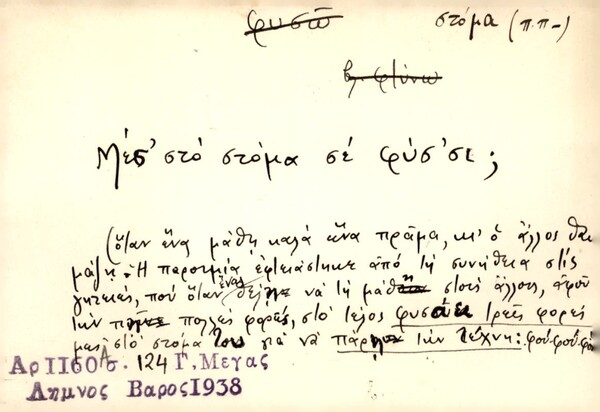 φυσῶ στόμα (π.π-)
βλ. φτύνω
Μέσ' στό στόμα σέ φύσ'σι;
(ὅταν ἕνα μάθῃ καλά ἕνα πρᾶμα, κι' ὁ ἄλλος θαι
μάζῃ. Ἡ παροιμία ἐφτειάστηκε ἀπό τή συνήθεια στίς
γητειές, πού ὅταν ἕνας θέλῃ νά τή μάθῃ στούς ἄλλους, ἀφοῦ
τήν πῇ πολλές φορές, στό τέλος φυσάει τρεῖς φορές
μές στό στόμα του γιά νά πάρῃ τήν τέχνη: φού-φού-φού
Αρ 1160 Α σ. 124 Γ. Μεγας
Λημνος Βαρος 1938